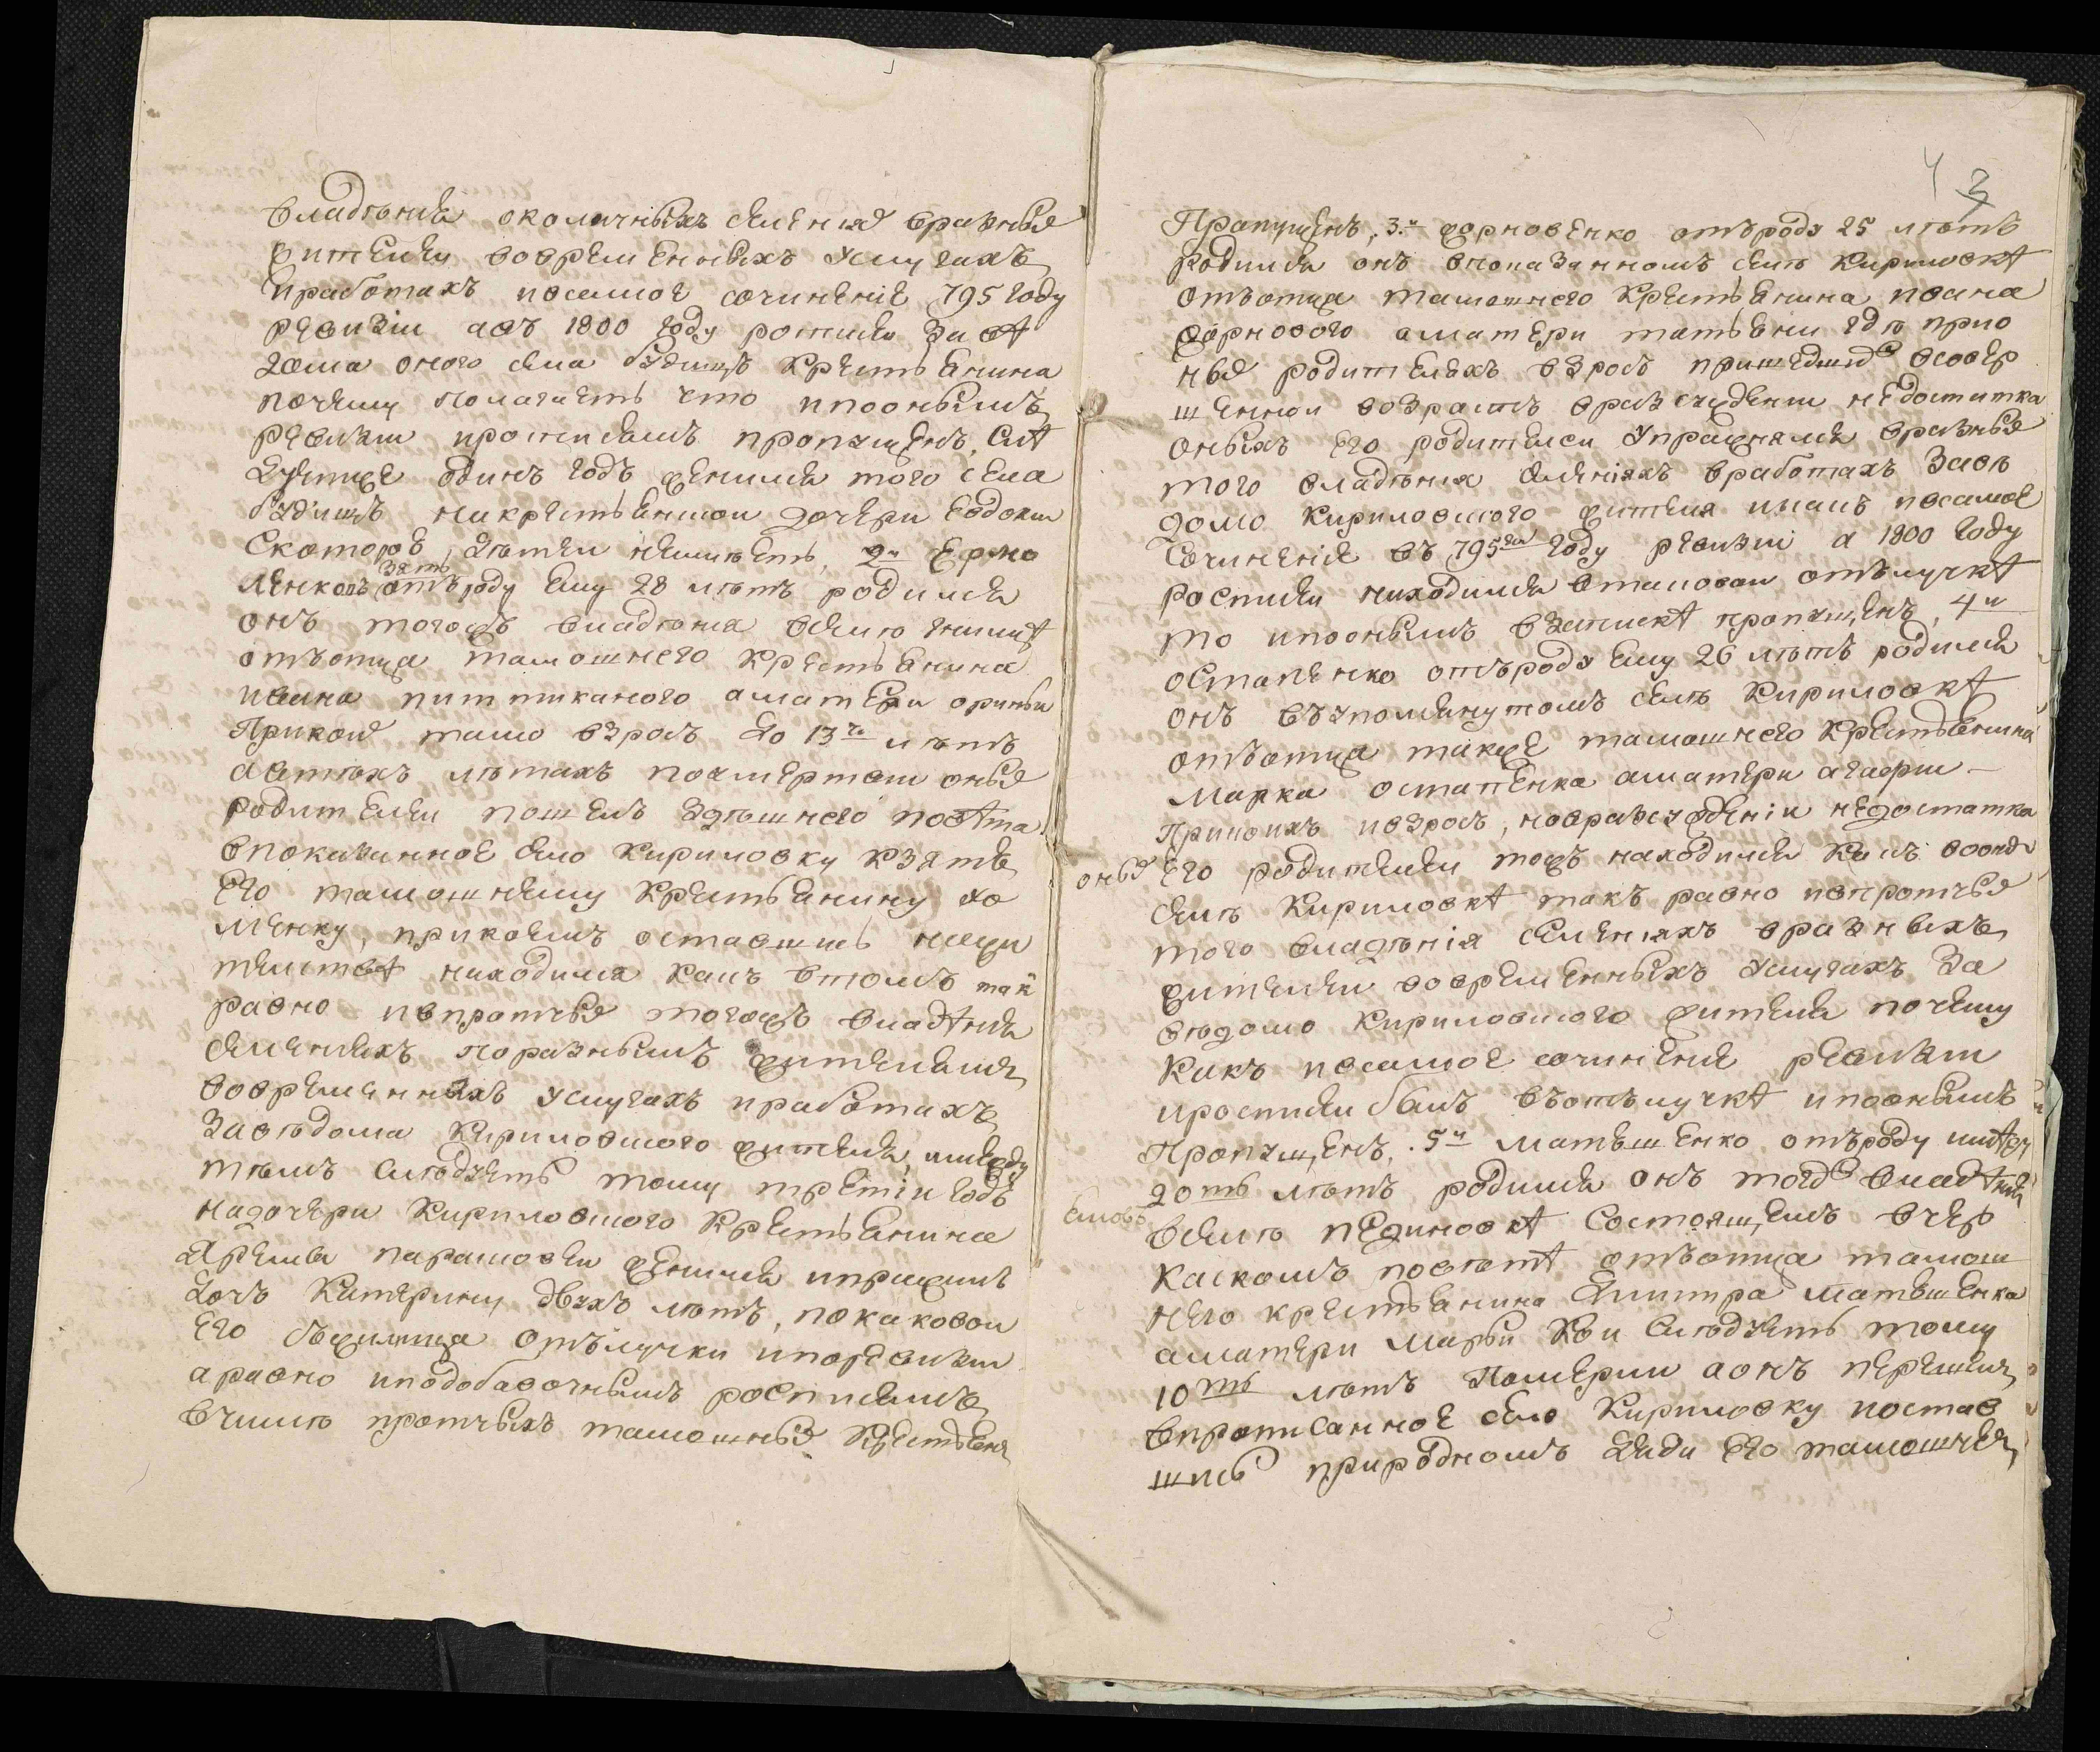 владения околичныхъ селений вразныхъ
жителей вовременныхъ услугахъ
иработахъ посамое сочинение 795 году
ревизии авъ 1800 году росписи заот
дома оного села Будищъ крестьянина
почему полагаетъ что ипоонымъ
ревизии иросписямъ пропущенъ,
одинъ годъ женился того села
Будищъ накрестьянской дочери Евдокии
Скоторою, детей неимеетъ, 2й Ермо
ленковъ зять отъроду ему 28 летъ родился
онъ тогожъ владения вселе
отъотца тамошнего крестьянина
ивана аматери орины
Прикоихъ тамо взросъ до 13ти летъ
автехъ летахъ посмертии оныхъ
родителей пошелъ здешнего повета
впоказанное село Кириловку кзятю
Его тамошнему крестьянину хо
менку, прикоемъ оставшись нажи
тельстве находился какъ втомъ так
равно ивпротчихъ тогожъ владения
селенияхъ поразнымъ жителямъ
вовременныхъ услугахъ иработахъ
Заведома кириловского жителя, имежду
темъ Следуетъ тому третий годъ
надочери Кириловского крестьянина
Яремы парасковеи женился иприжилъ
дочь Катерину двухъ летъ, покаковой
Его бежилища отълучки иповревизии
аравно иподобавочнымъ росписямъ
вчисле протчихъ тамошныхъ крестьянъ
4 3
Пропущенъ, 3й жорновенко отъроду 25 летъ
родился онъ впоказанномъ селе Кириловке
отъотца тамошнего крестьянина ивана
жорнового аматери татьяни где прио
ныхъ родителехъ взросъ пришедши в совер
шенной возрастъ вразсуждении недостатка
оныхъ его родителей упражнялся вразныхъ
того владения селенияхъ вработахъ заве
домо Кириловского жителя инакъ посамое
Сочинение въ 795м году ревизии а 1800 году
росписи находился втаковой отълучке
то ипоонымъ взаписке пропущенъ, 4й
остапенко отъроду ему 26 летъ родился
онъ въупомянутомъ селе Кириловке
отъотца также тамошнего крестьянина
Марка остапенка аматери агафии
Прикоихъ ивзросъ, новразсуждении недостатка
оныхъ его родителей тожъ находился какъ воонд
селе Кириловке такъ равно ивпротчихъ
того владения селенияхъ вразныхъ
жителей вовременныхъ услугахъ за
ведомо Кириловского жителя почему
Какъ посамое сочинение ревизии
иросписи былъ въотълучке ипоонымъ
Пропущенъ. 5й матвшенко отъроду имеет
20ть летъ родился онъ того владения
вселе пединовке Состоящемъ вчер
каскомъ повете отъотца тамош
него крестьянина Дмитра матвшенка
аматери марьи кои Следуетъ тому
10ть летъ Померли аонъ перешелъ
впрописанное село Кириловку постав
шись природномъ дяди его тамошнемъ